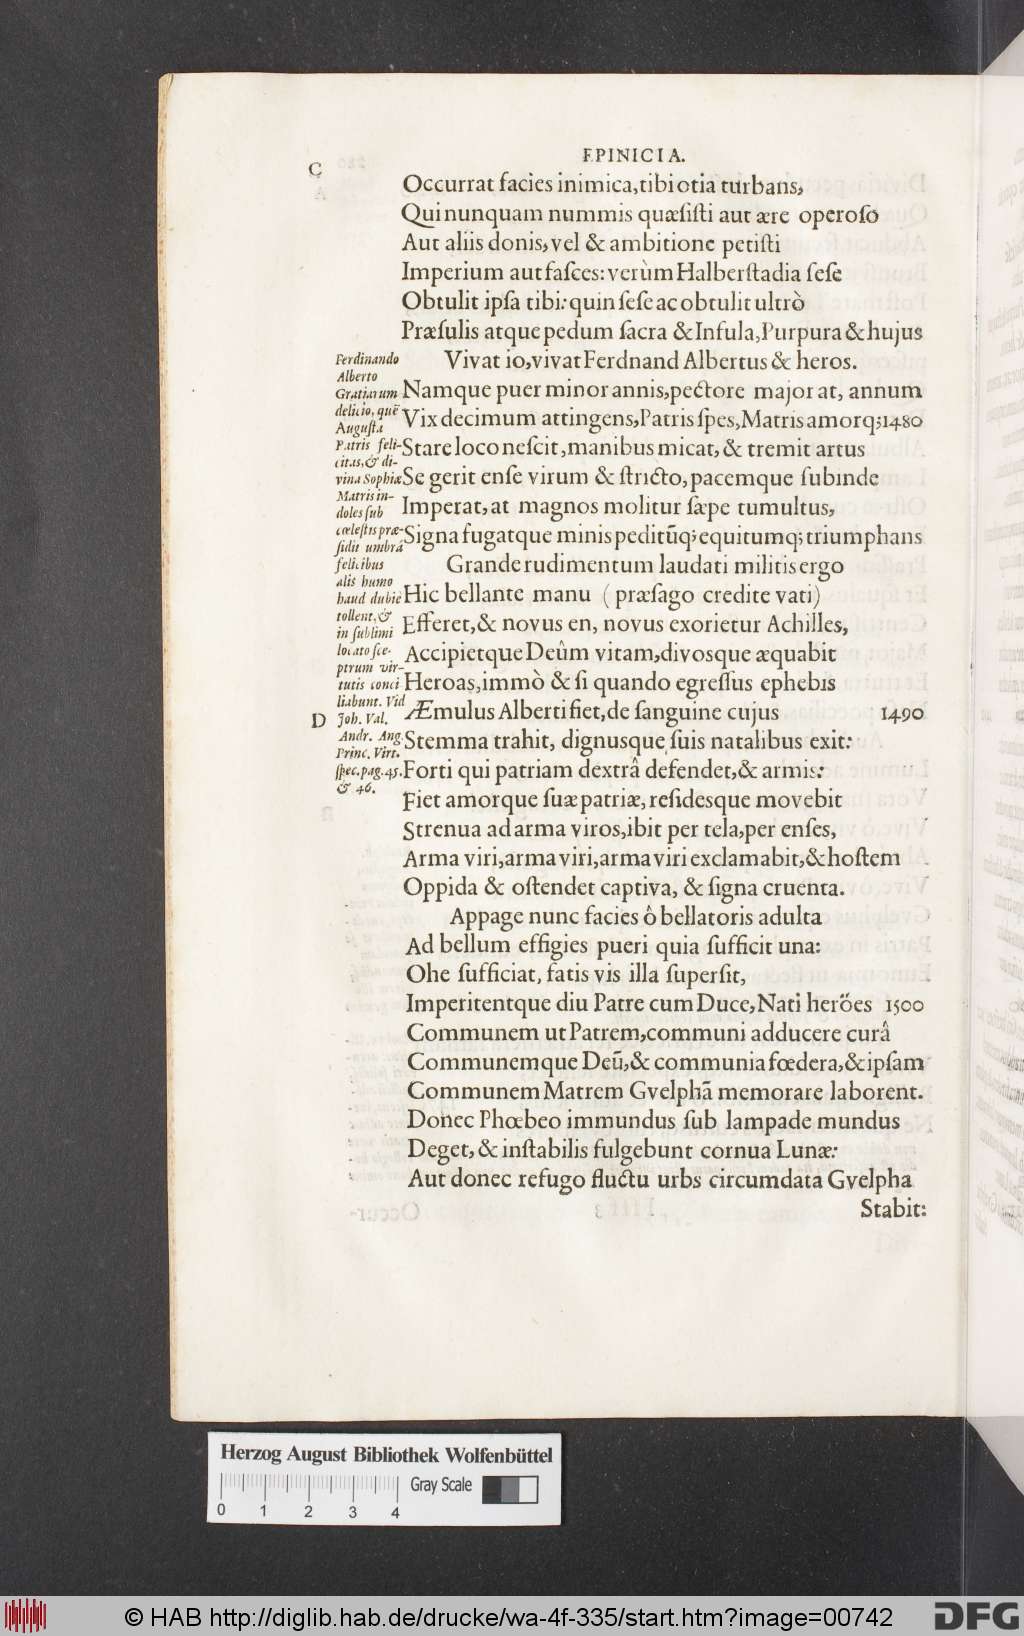 EPINICIA.
C
Occurrat facies inimica, tibi otia turbans,
Qui nunquam nummis quæsiſti aut ære operoſo
Aut aliis donis, vel & ambitione petiſti
Imperium aut faſces: verùm Halberſtadia ſeſe
Obtulit ipſa tibi: quin ſeſe ac obtulit ultrò
Præſulis atque pedum ſacra & Infula, Purpura & hujus
Vivat io, vivat Ferdnand Albertus & heros.
Namque puer minor annis, pectore major at, annum
Vix decimum attingens, Patris ſpes, Matris amorq; 1480
Stare loco neſcit, manibus micat, & tremit artus
Se gerit enſe virum & ſtricto, pacemque ſubinde
Imperat, at magnos molitur ſæpe tumultus,
Signa fugatque minis peditũq; equitumq; triumphans
Grande rudimentum laudati militis ergo
Hic bellante manu ( præſago credite vati)
Efferet, & novus en, novus exorietur Achilles,
Accipietque Deûm vitam, divosque æquabit
Heroas, immò & ſi quando egreſſus ephebis
Æmulus Alberti fiet, de ſanguine cujus 1490
Stemma trahit, dignusque ſuis natalibus exit:
Forti qui patriam dextrâ defendet, & armis:
Fiet amorque ſuæ patriæ, reſidesque movebit
Strenua ad arma viros, ibit per tela, per enſes,
Arma viri, arma viri, arma viri exclamabit, & hoſtem
Oppida & oſtendet captiva, & ſigna cruenta.
Appage nunc facies ô bellatoris adulta
Ad bellum effigies pueri quia ſufficit una:
Ohe ſufficiat, fatis vis illa ſuperſit,
Imperitentque diu Patre cum Duce, Nati heröes 1500
Communem ut Patrem, communi adducere curâ
Communemque Deũ, & communia fœdera, & ipſam
Communem Matrem Gvelphã memorare laborent.
Donec Phœbeo immundus ſub lampade mundus
Deget, & inſtabilis fulgebunt cornua Lunæ:
Aut donec refugo fluctu urbs circumdata Gvelpha
Stabit:
Ferdinando
Alberto
Gratiarum
delicio, quẽ
Auguſta
Patris feli-
citas, & di-
vina Sophiæ
Matris in-
doles ſub
cœleſtis præ-
ſidii umbrâ
felicibus
alis humo
haud dubiè
tollent, &
in ſublimi
locato ſce-
ptrum vir-
tutis conci
liabunt. Vid
Joh. Val.
Andr. Ang.
Princ. Virt.
ſpec. pag. 45.
& 46.
D
Herzog August Bibliothek Wolfenbüttel
Gray Scale
0 1 2 3 4
© HAB http://diglib.hab.de/drucke/wa-4f-335/start.htm?image=00742
DFG